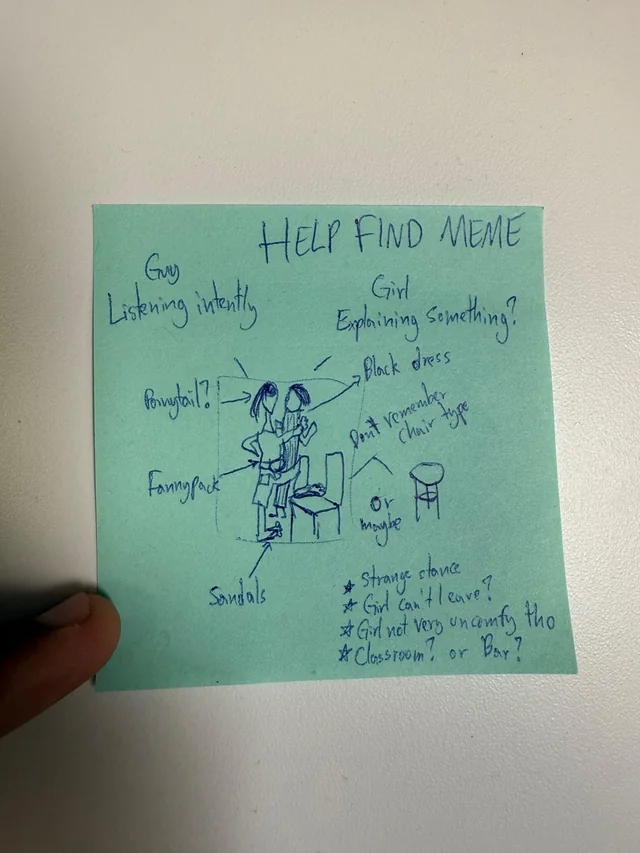 HELP FIND MEME
Guy
Listening intently
Girl
Explaining something?
Black dress
Ponytail?
Don't remember
chair type
Fannypack
or
maybe
Sandals
☆ Strange stance
☆ Girl can't leave?
☆ Girl not very uncomfy tho
☆ Classroom? or Bar?